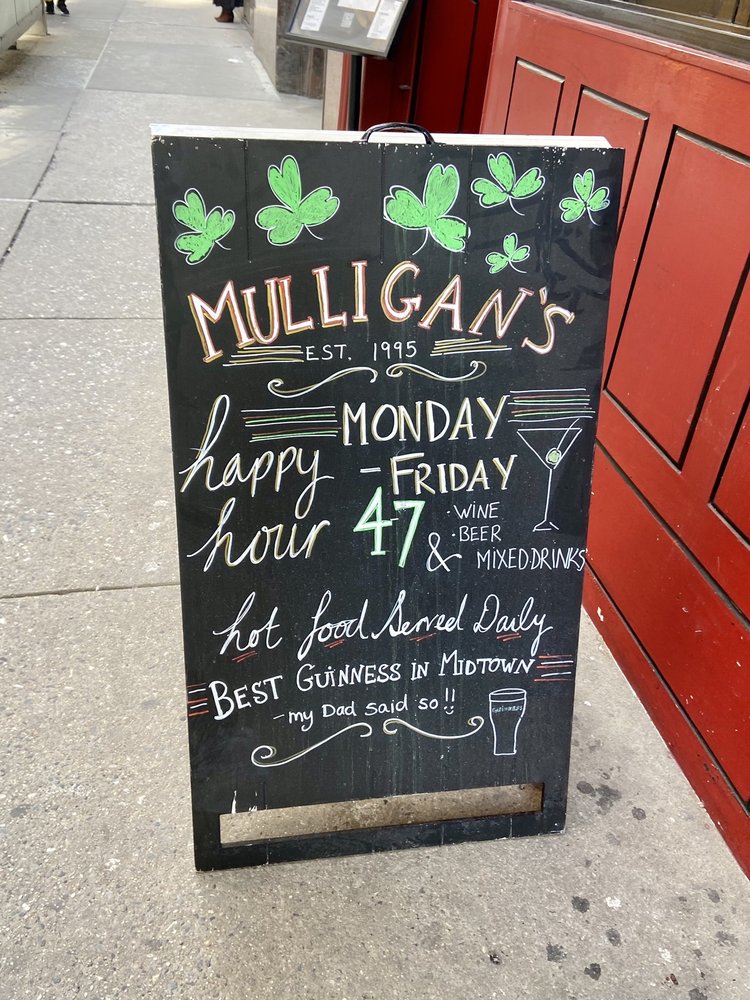 MULLIGAN'S
EST. 1995
happy hour
MONDAY
-FRIDAY
47
·WINE
·BEER
& MIXED·DRINKS
hot food Served Daily
BEST GUINNESS IN MIDTOWN
-my Dad said so!!
GUINNESS